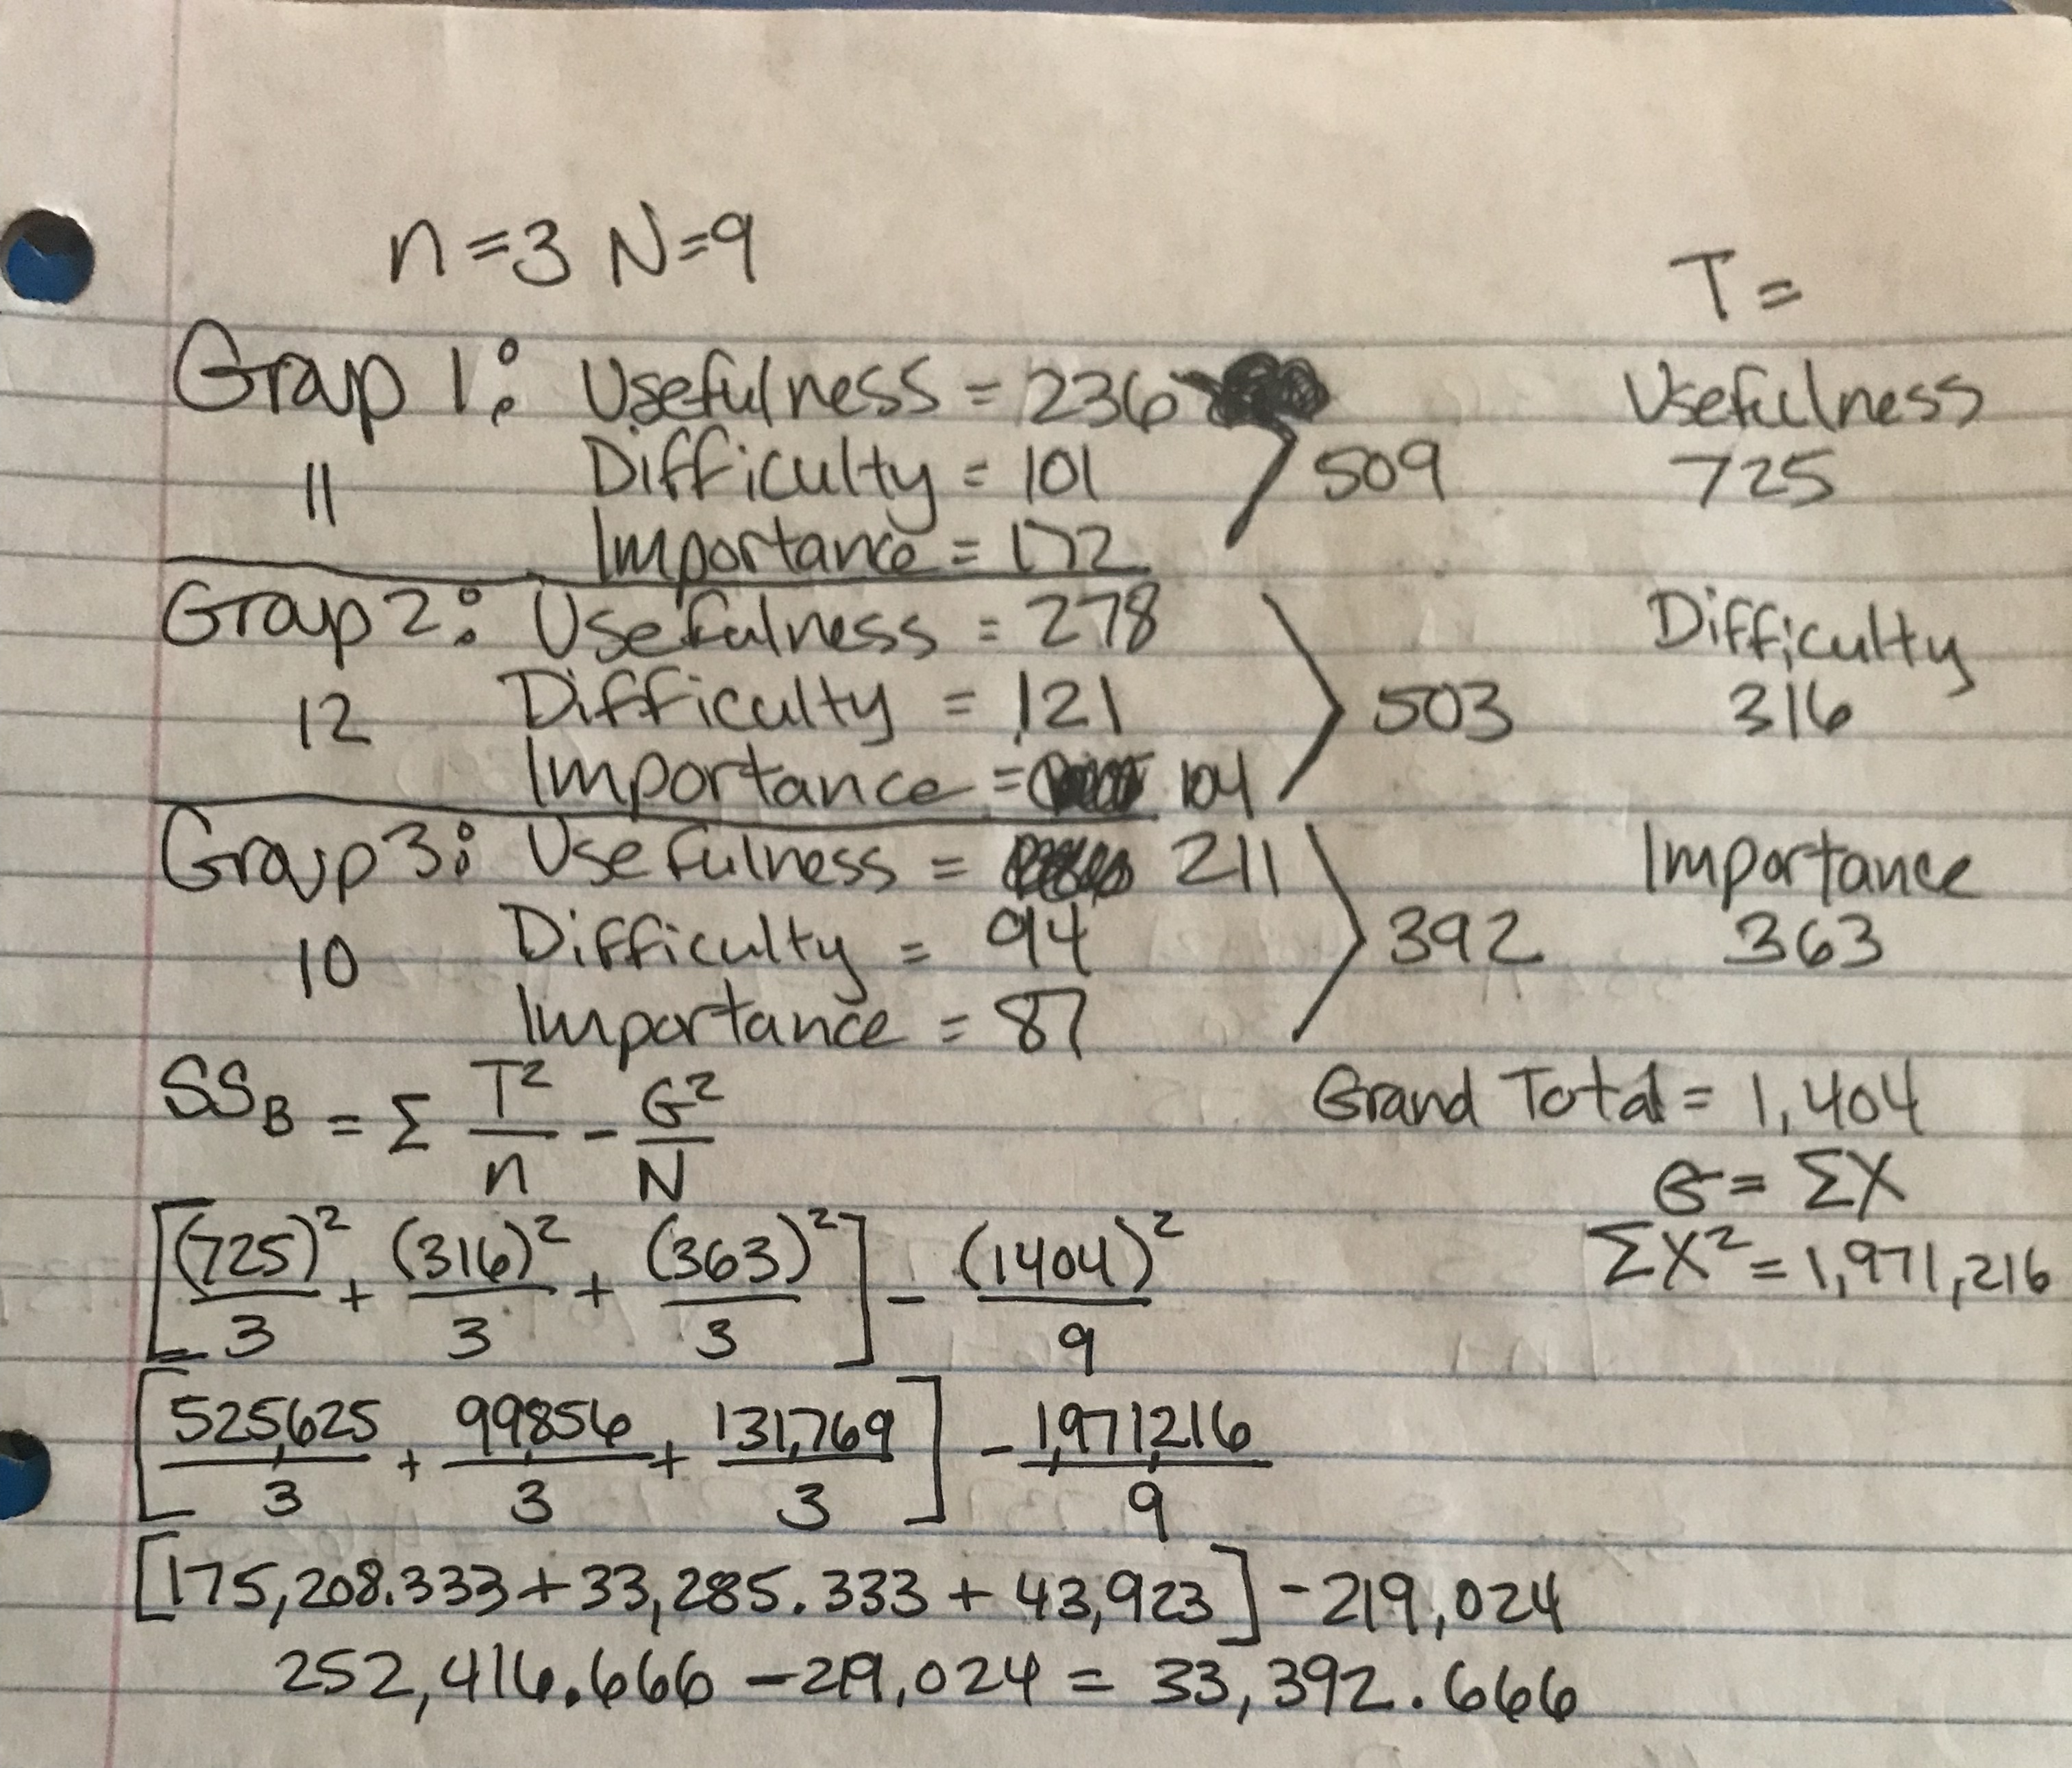 n=3 N=9
T=
Group 1: Usefulness = 236
Usefulness
Difficulty = 101
509
725
11
Importance = 172
Group 2: Usefulness = 278
Difficulty
12
Difficulty = 121
503
316
Importance = 104
Group 3: Usefulness = 211
Importance
10
Difficulty = 94
392
363
Importance = 87
SS_B = Σ T²/n - G²/N
Grand Total = 1,404
G = ΣX
ΣX² = 1,971,216
[(725)²/3 + (316)²/3 + (363)²/3] - (1404)²/9
[525,625/3 + 99,856/3 + 131,769/3] - 1,971,216/9
[175,208.333 + 33,285.333 + 43,923] - 219,024
252,416.666 - 219,024 = 33,392.666